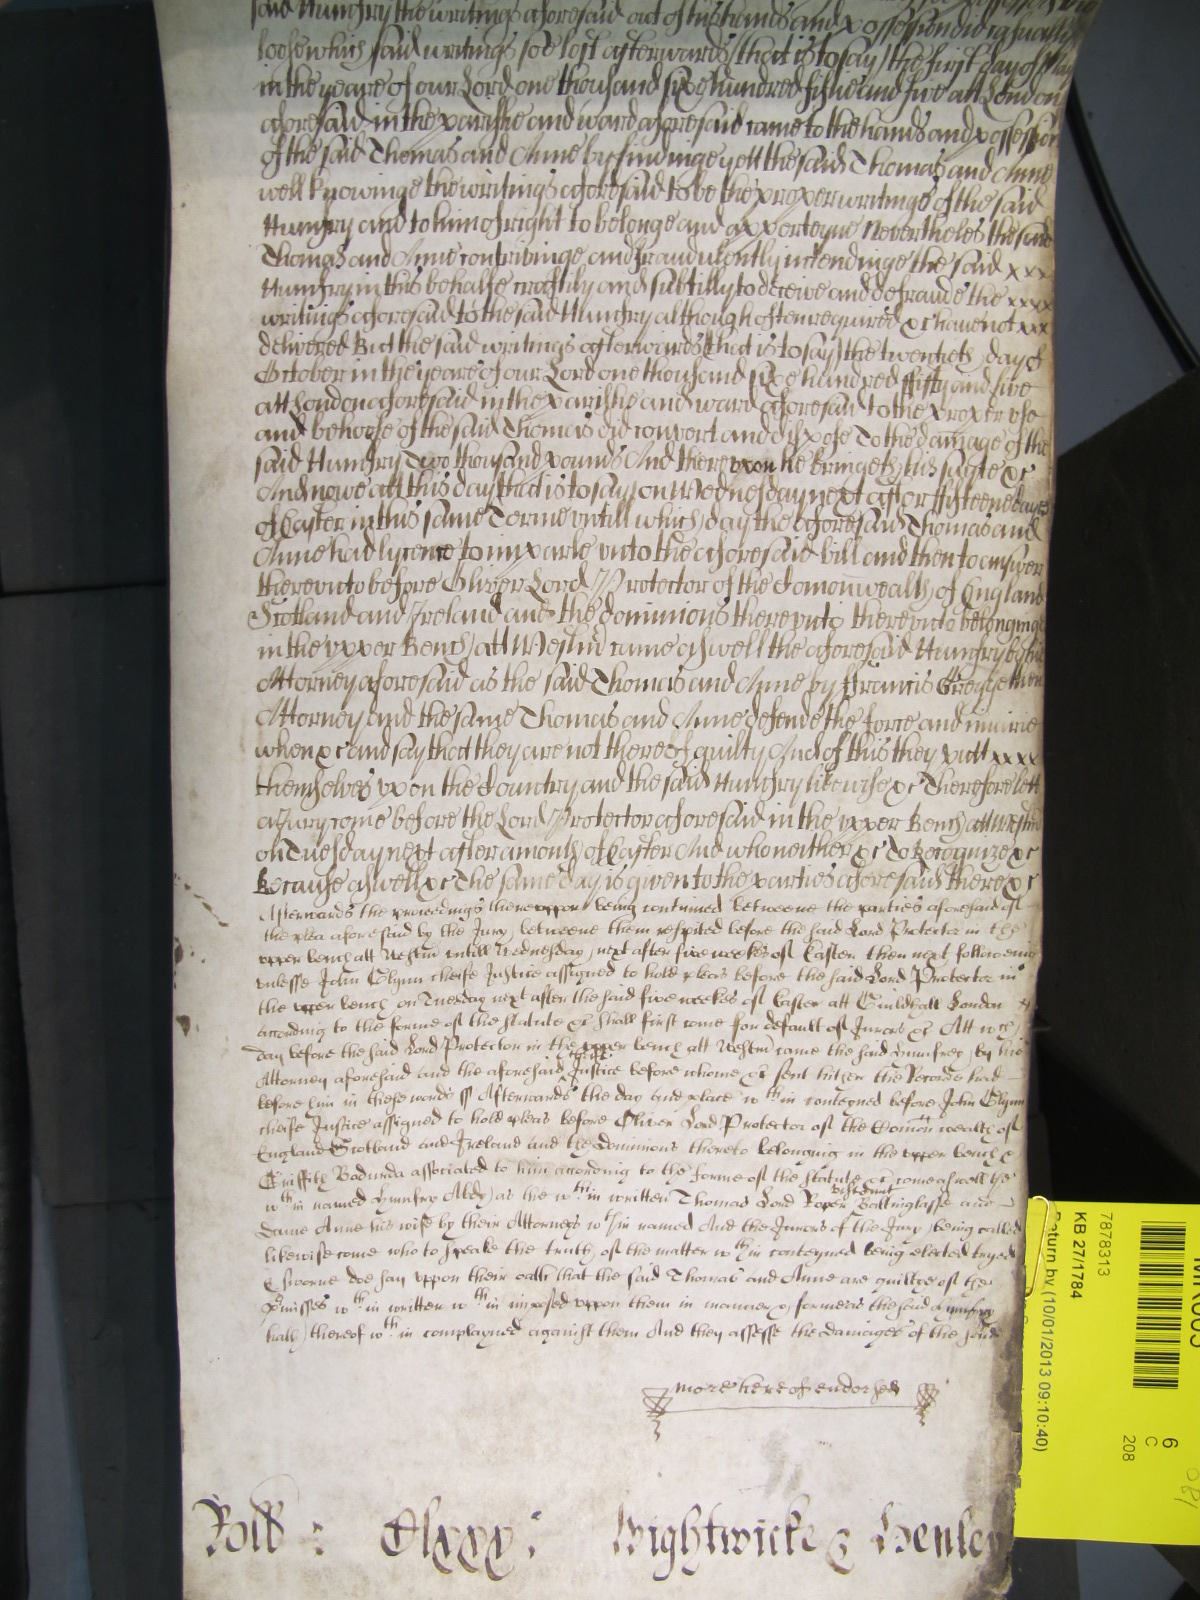 said Humfry the writings aforesaid out of his hands and possession did casually
loose which said writings soe lost afterwards (that is to say) the first day of May
in the yeare of our Lord one thousand sixe hundred fiftie and five att London
aforesaid in the parishe and ward aforesaid came to the hands and possession
of the said Thomas and Anne by findinge yett the said Thomas and Anne
well knowinge the writings aforesaid to be the proper writings of the said
Humfry and to him of right to belonge and apperteyne Nevertheles the said
Thomas and Anne contrivinge and fraudulently intendinge the said xxx
Humfry in this behalfe craftily and subtilly to deceive and defraude the xxxx
writings aforesaid to the said Humfry although often required &c have not xxx
delivered But the said writings afterwards (that is to say) the twentieth day of
October in the yeare of our Lord one thousand sixe hundred ffifty and five
att London aforesaid in the parishe and ward aforesaid to the proper use
and behoofe of the said Thomas did convert and dispose To the damage of the
said Humfry Two thousand pounds And thereupon he bringeth his suyte &c
And nowe att this day that is to say on Wednesday next after fifteene dayes
of Easter in this same Terme untill which day the aforesaid Thomas and
Anne had lycence to imparle unto the aforesaid bill and then to answer
thereunto before Oliver Lord Protector of the Comonwealth of England
Scotland and Ireland and the dominions thereunto thereunto belonginge
in the upper Bench att Westm came aswell the aforesaid Humfry by his
Attorney aforesaid as the said Thomas and Anne by ffrancis Gregge their
Attorney And the same Thomas and Anne defende the force and iniurie
when &c and say that they are not thereof guilty And of this they putt xxxx
themselves upon the Country and the said Humfry likewise &c Therefore lett
a Jury come before the Lord Protector aforesaid in the upper Bench att Westm
on Tuesday next after a month of Easter And who neither &c To Recognize &c
Because aswell &c The same day is given to the parties aforesaid there &c
Afterwards the proceedings thereuppon being continued betweene the parties aforesaid of
the plea aforesaid by the Jury betweene them respited before the said Lord Protector in the
upper bench att Westm untill Wednesday next after five weekes of Easter then next following
unlesse John Glynn cheife Justice assigned to hold pleas before the said Lord Protector in
the upper bench on Tuesday next after the said five weekes of Easter att Guildhall London
according to the forme of the statute &c shall first come for default of Jurors &c Att wch
day before the said Lord Protector in the upper bench att Westm came the said Humfrey by his
Attorney aforesaid And the aforesaid cheife Justice before whome &c sent hither the Record had
before him in these words ss Afterwards the day and place wth in conteyned before John Glynn
cheife Justice assigned to hold pleas before Oliver Lord Protector of the Comon wealth of
England Scotland and Ireland and the Dominions thereto belonging in the upper bench &
Griffith Bodurda associated to him according to the forme of the statute &c come aswell the
wth in named Humfry Aldy as the wth in written Thomas Lord Roper viscount Baltinglasse and
Dame Anne his wife by their Attorneys wth in named And the Jurors of the Jury being called
likewise come who to speake the truth of the matter wth in conteyned being elected tryed
& sworne doe say uppon their oath that the said Thomas and Anne are guiltye of the
pmisses wth in written wth in imposed uppon them in manner & forme as the said Humfry
hath thereof wth in complayned against them And they assesse the damages of the said
more hereof endorsed
Roll : Clxxx : Wightwicke & Henley
7878313
KB 27/1784
Return by (10/01/2013 09:10:40)
6
C
208